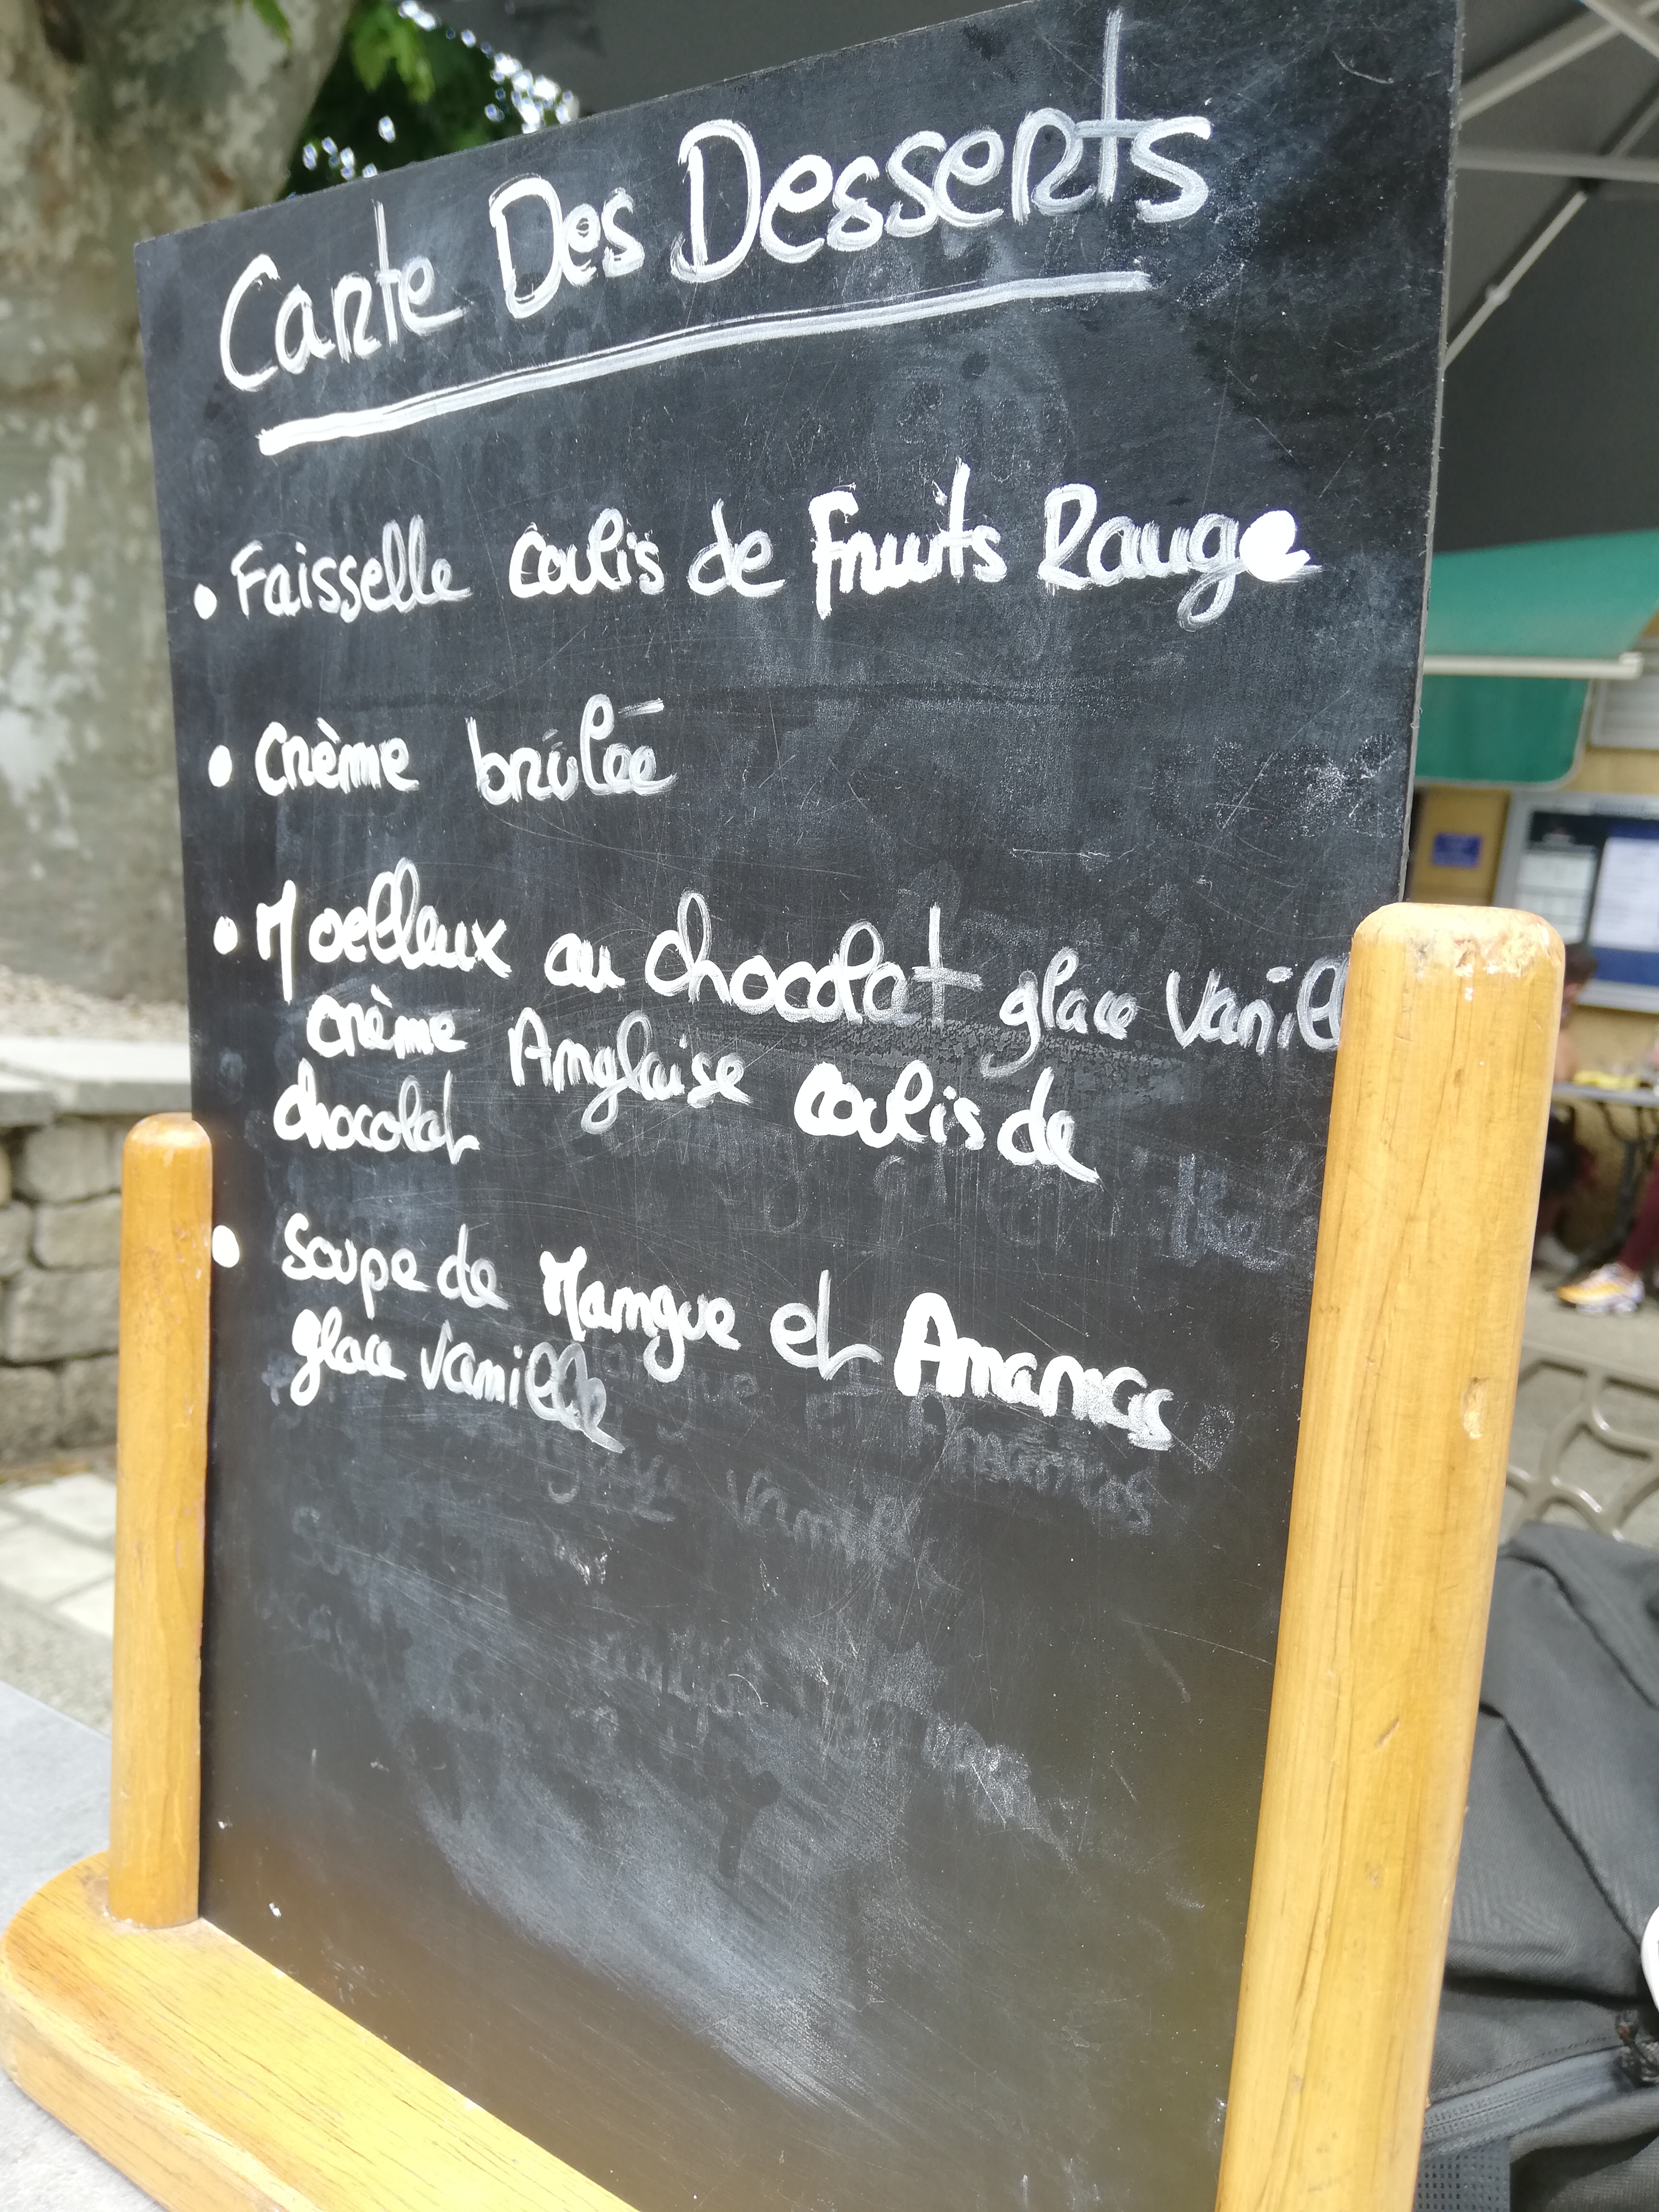 Carte Des Desserts
• Faisselle coulis de Fruits Rouge
• crème brûlée
• Moelleux au chocolat glace Vanill
crème Anglaise coulis de
chocolat
• Soupe de Mangue et Ananas
glace vanille